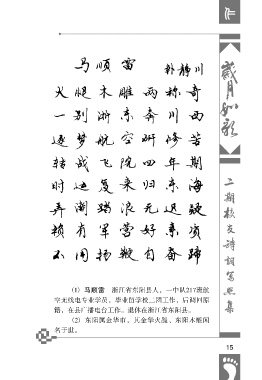 马顺雷 朴静川
火腿木雕两称奇
一别浙东奔川西
逐梦航空研修苦
转战飞院四年期
时迁复来归东海
弄潮踏浪无迟疑
赖有军营好素质
不用扬鞭自奋蹄
(1) 马顺雷 浙江省东阳县人，一中队217班航
空无线电专业学员，毕业留学校二湾工作，后调回原
籍，在县广播电台工作。退休在浙江省东阳县。
(2) 东阳属金华市，其金华火腿、东阳木雕闻
名于世。
岁月如歌
二期校友诗词写照集
15